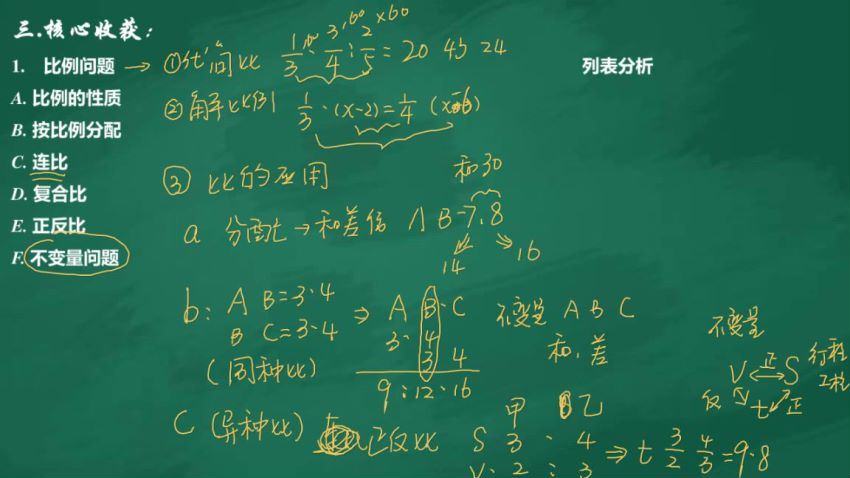 三.核心收获：
1. 比例问题 → ①化简比 1/3 : 3/4 : 2/5 = 20 45 24
×60
列表分析
A. 比例的性质
②解比例 1/3 · (x-2) = 1/4
B. 按比例分配
C. 连比
③ 比的应用
和30
D. 复合比
E. 正反比
a 分配比 → 和差倍 A B=7:8
14 16
F. 不变量问题
b: A B=3:4 ⇒ A B C
B C=3:4 3 : 4
3 4
(同种比) 9 : 12 : 16
不变量 A B C
和、差
不变量
V 正 S 行程
工程
反 t 正
C (异种比) 正反比
甲 乙
S 3 : 4 ⇒ t 3/2 4/3 = 9:8
V: 2 : 3